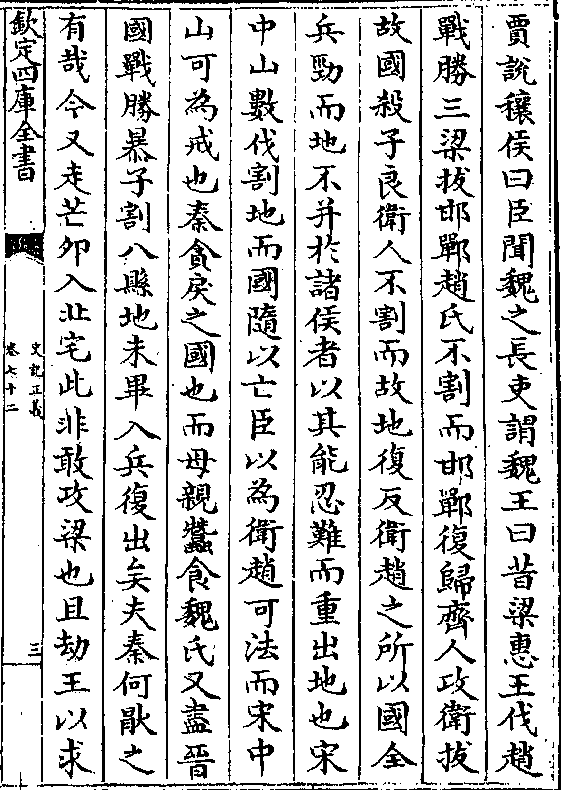 賈說穰侯曰臣聞魏之長吏謂魏王曰昔梁惠王伐趙
戰勝三梁拔邯鄲趙氏不割而邯鄲復歸齊人攻衛拔
故國殺子良衛人不割而故地復反衛趙之所以國全
兵勁而地不并於諸侯者以其能忍難而重出地也宋
中山數伐割地而國隨以亡臣以為衛趙可法而宋中
山可為戒也秦貪戾之國也而母親蠶食魏氏又盡晉
國戰勝暴子割八縣地未畢入兵復出矣夫秦何厭之
有哉今又走芒卯入北宅此非敢攻梁也且劫王以求
欽定四庫全書
史記正義
卷七十二
三